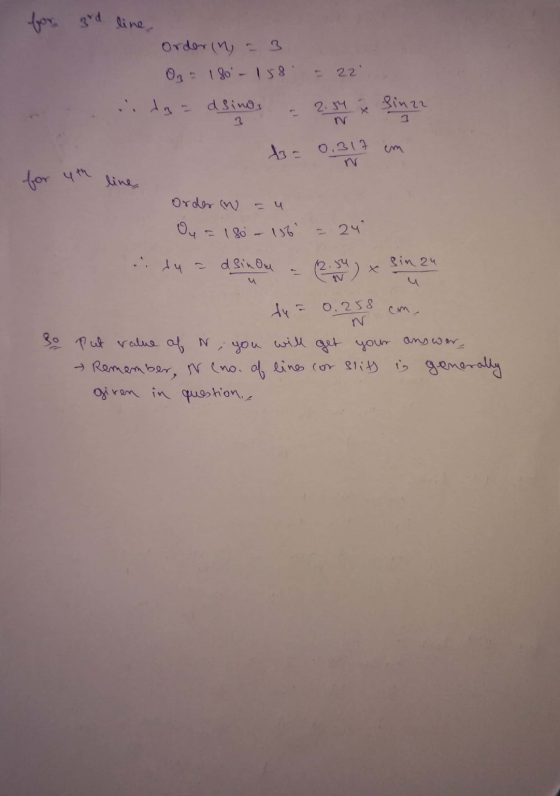 for 3rd line,
Order (n) = 3
θ3 = 180° - 158° = 22°
∴ λ3 = d sinθ3 / 3 = 2.54 / N × sin 22 / 3
λ3 = 0.317 / N cm
for 4th line
Order (n) = 4
θ4 = 180° - 156° = 24°
∴ λ4 = d sinθ4 / 4 = (2.54 / N) × sin 24 / 4
λ4 = 0.258 / N cm.
So Put value of N, you will get your answer.
→ Remember, N (no. of lines (or slit) is generally
given in question.